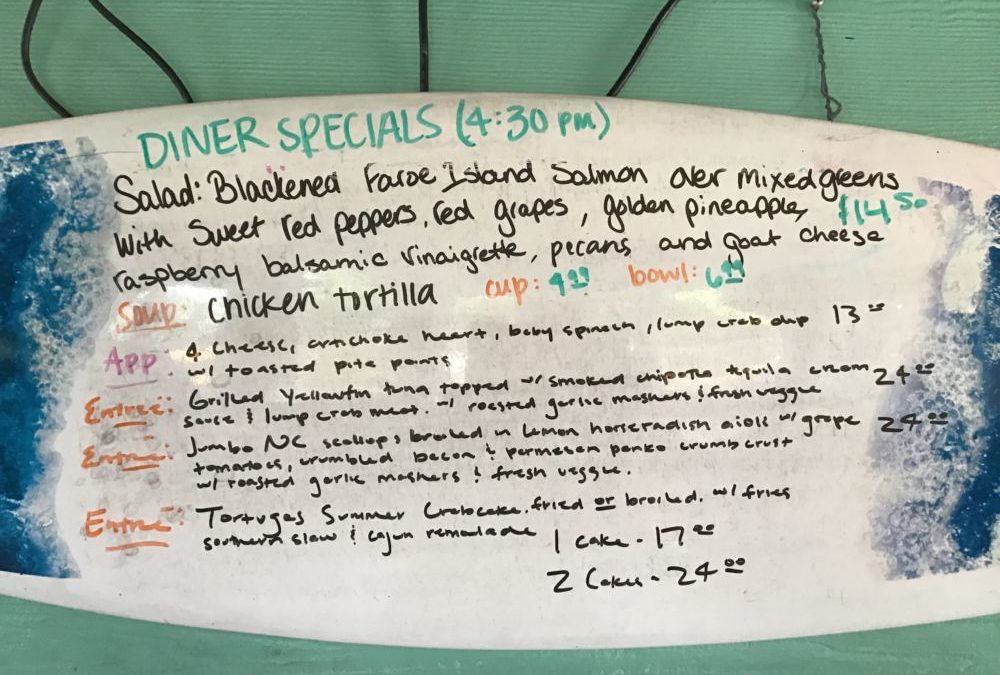 DINER SPECIALS (4:30 pm)
Salad: Blackened Faroe Island Salmon over mixed greens
with sweet red peppers, red grapes, golden pineapple, $14 50
raspberry balsamic vinaigrette, pecans and goat cheese
Soup: Chicken tortilla cup: 4 99 bowl: 6 99
App: 4 cheese, artichoke heart, baby spinach, lump crab dip 13 00
w/ toasted pita points
Entrée: Grilled Yellowfin tuna topped w/ smoked chipotle tequila cream 24 00
sauce & lump crab meat. w/ roasted garlic mashers & fresh veggie
Entrée: Jumbo NC scallops broiled in lemon horseradish aioli w/ grape 24 00
tomatoes, crumbled bacon & parmesan panko crumb crust
w/ roasted garlic mashers & fresh veggie.
Entrée: Tortugas Summer Crabcake. fried or broiled. w/ fries
southern slaw & cajun remoulade 1 cake - 17 00
2 Cakes - 24 00